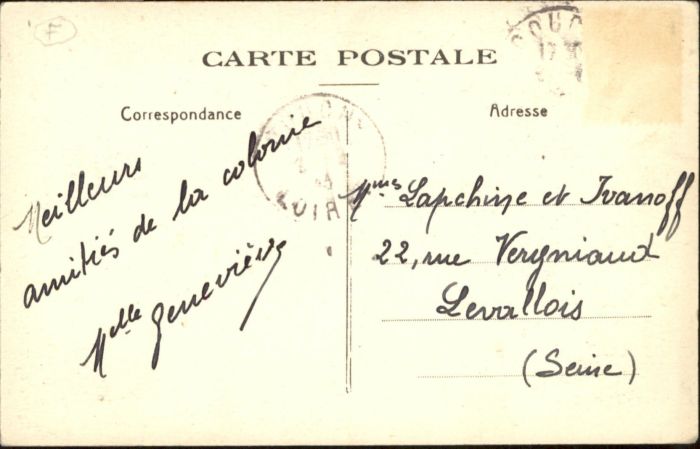 F
CARTE POSTALE
Correspondance
Adresse
Meilleurs
amitiés de la colonie
Melle Geneviève
Mmes Lapchine et Ivanoff
22, rue Vergniaud
Levallois
(Seine)